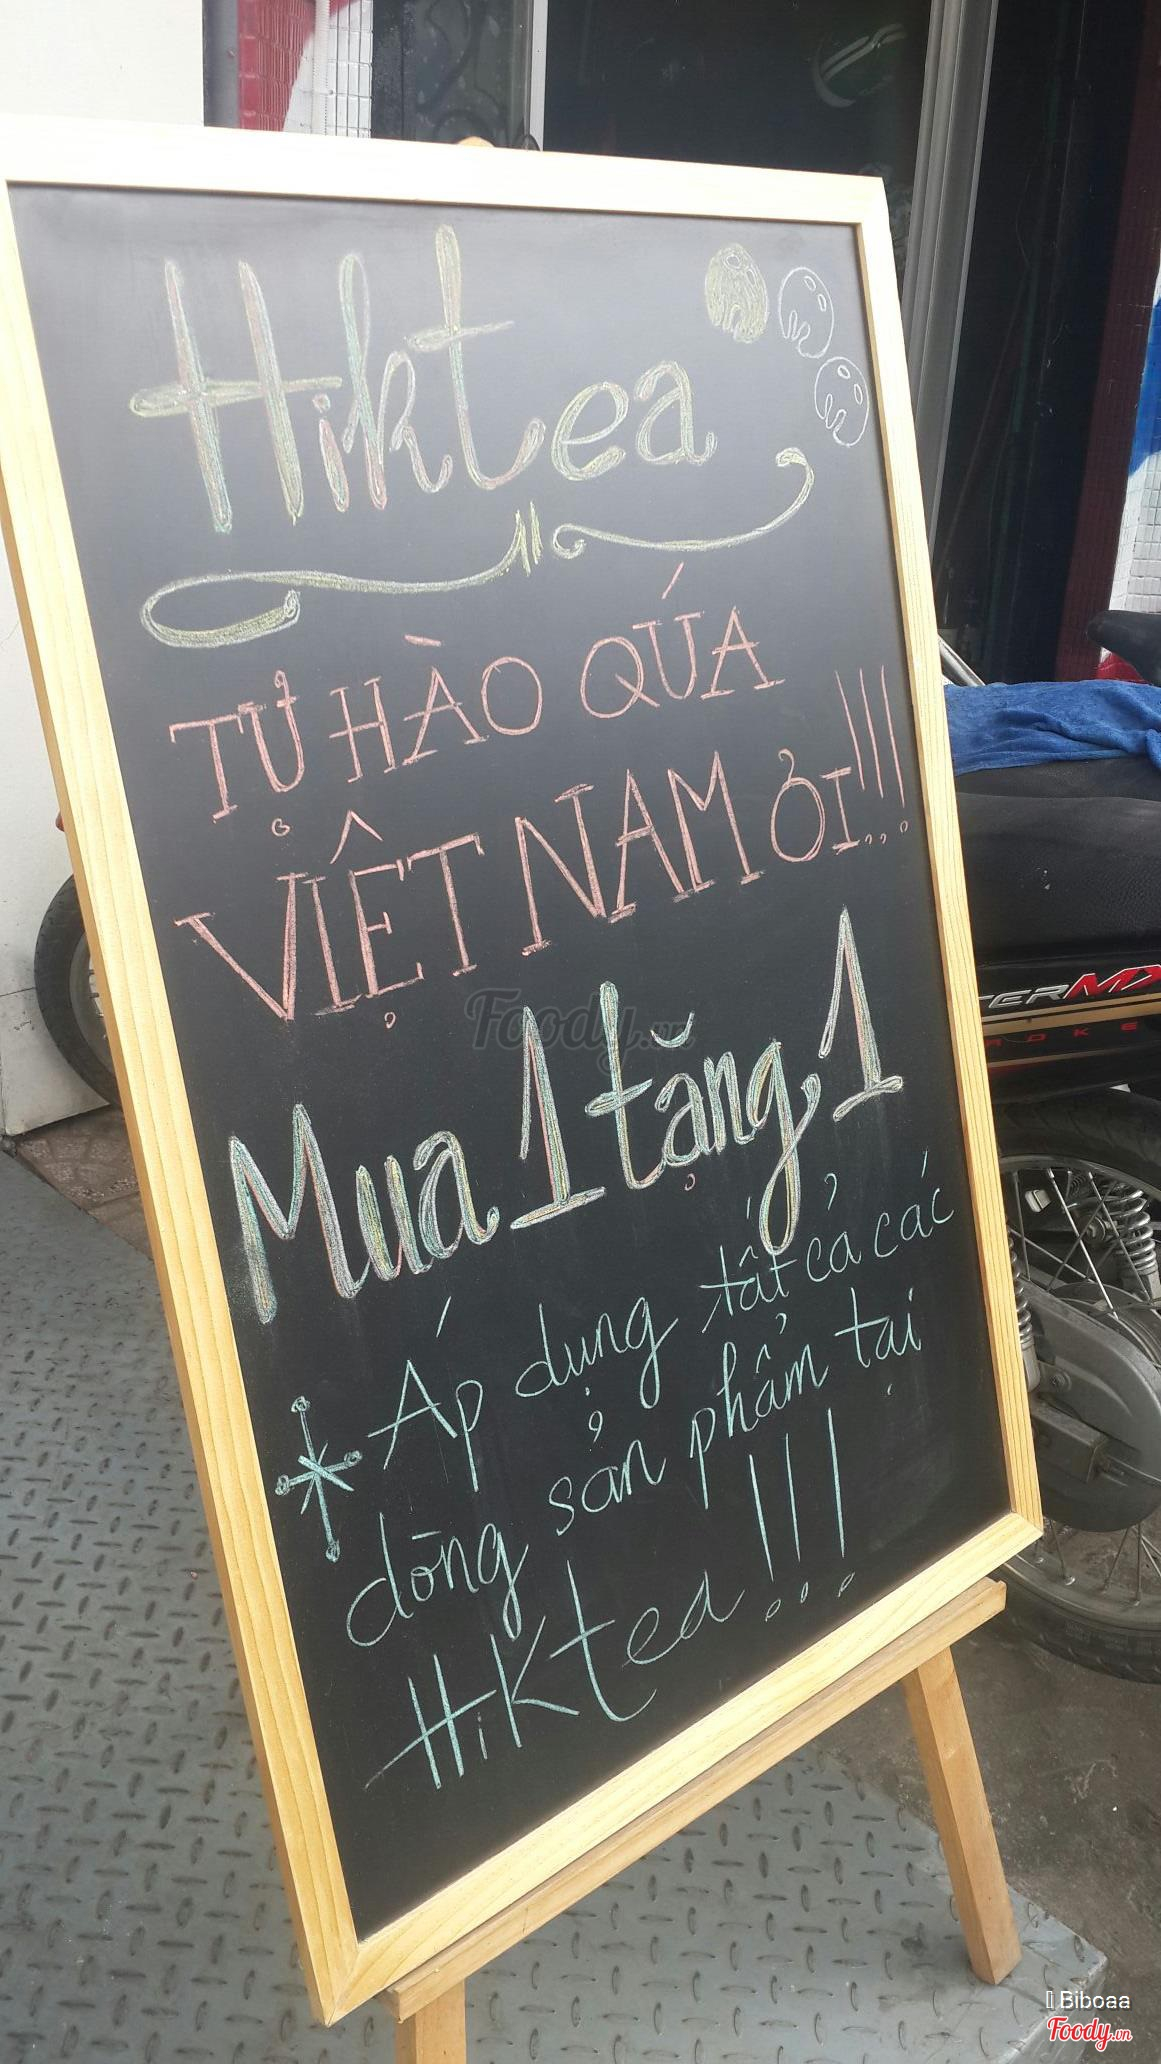 Hiktea
TỰ HÀO QUÁ
VIỆT NAM ỞI!!!
Mua 1 tặng 1
* Áp dụng tất cả các
dòng sản phẩm tại
Hiktea!!!
Foody.vn
TERMX
Biboaa
Foody.vn